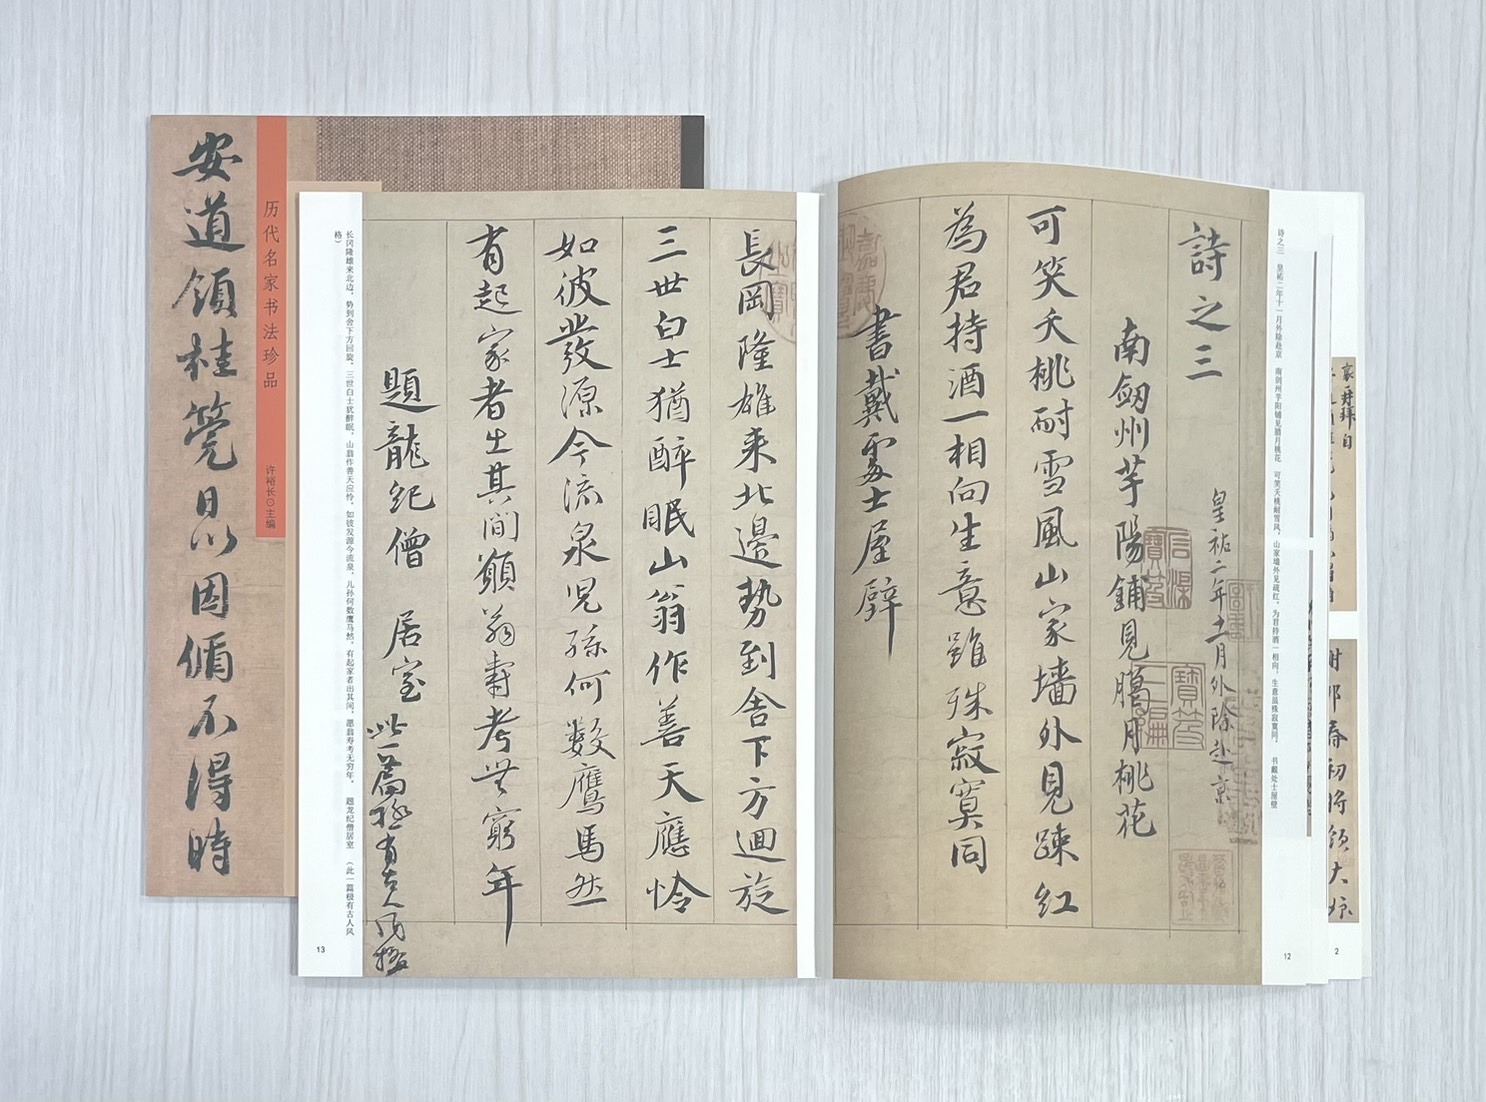 安道領桂筦日以因循不得時
历代名家书法珍品
许裕长⊙主编
詩之三
皇祐二年十一月外除赴京
南劔州芋陽鋪見臈月桃花
可笑夭桃耐雪風山家墻外見踈紅
為君持酒一相向生意雖殊寂寞同
書戴處士屋壁
诗之三 皇祐二年十一月外除赴京 南剑州芋阳铺见腊月桃花 可笑夭桃耐雪风，山家墙外见疏红。为君持酒一相向，生意虽殊寂寞同。 书戴处士屋壁
12
長岡隆雄来北邊勢到舎下方迴旋
三世白士猶醉眠山翁作善天應怜
如彼發源今流泉児孫何數鷹馬然
有起家者出其間願翁壽考無窮年
題龍紀僧居室
此一篇極有古人風格
长冈隆雄来北边，势到舍下方回旋。三世白士犹醉眠，山翁作善天应怜。如彼发源今流泉，儿孙何数鹰马然。有起家者出其间，愿翁寿考无穷年。 题龙纪僧居室 （此一篇极有古人风
格）
13
謝郎春初將領大娘
2